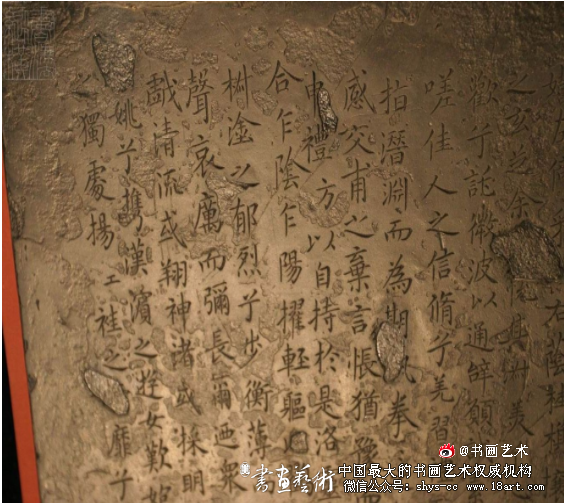 右蔭桂
之玄芝余情其淑美
歡兮託微波以通辭願
嗟佳人之信脩兮羌習
指潛淵而為期執拳
感交甫之棄言悵猶豫
申禮方以自持於是洛
合乍陰乍陽擢輕軀以
樹塗之郁烈兮步衡薄
聲哀厲而彌長爾迺
戲清流或翔神渚或採
姚兮攜漢濱之遊女歎
獨處揚袿之靡
@书画艺术
書畫藝術 中国最大的书画艺术权威机构
微信公众号：shys-cc www.18art.com